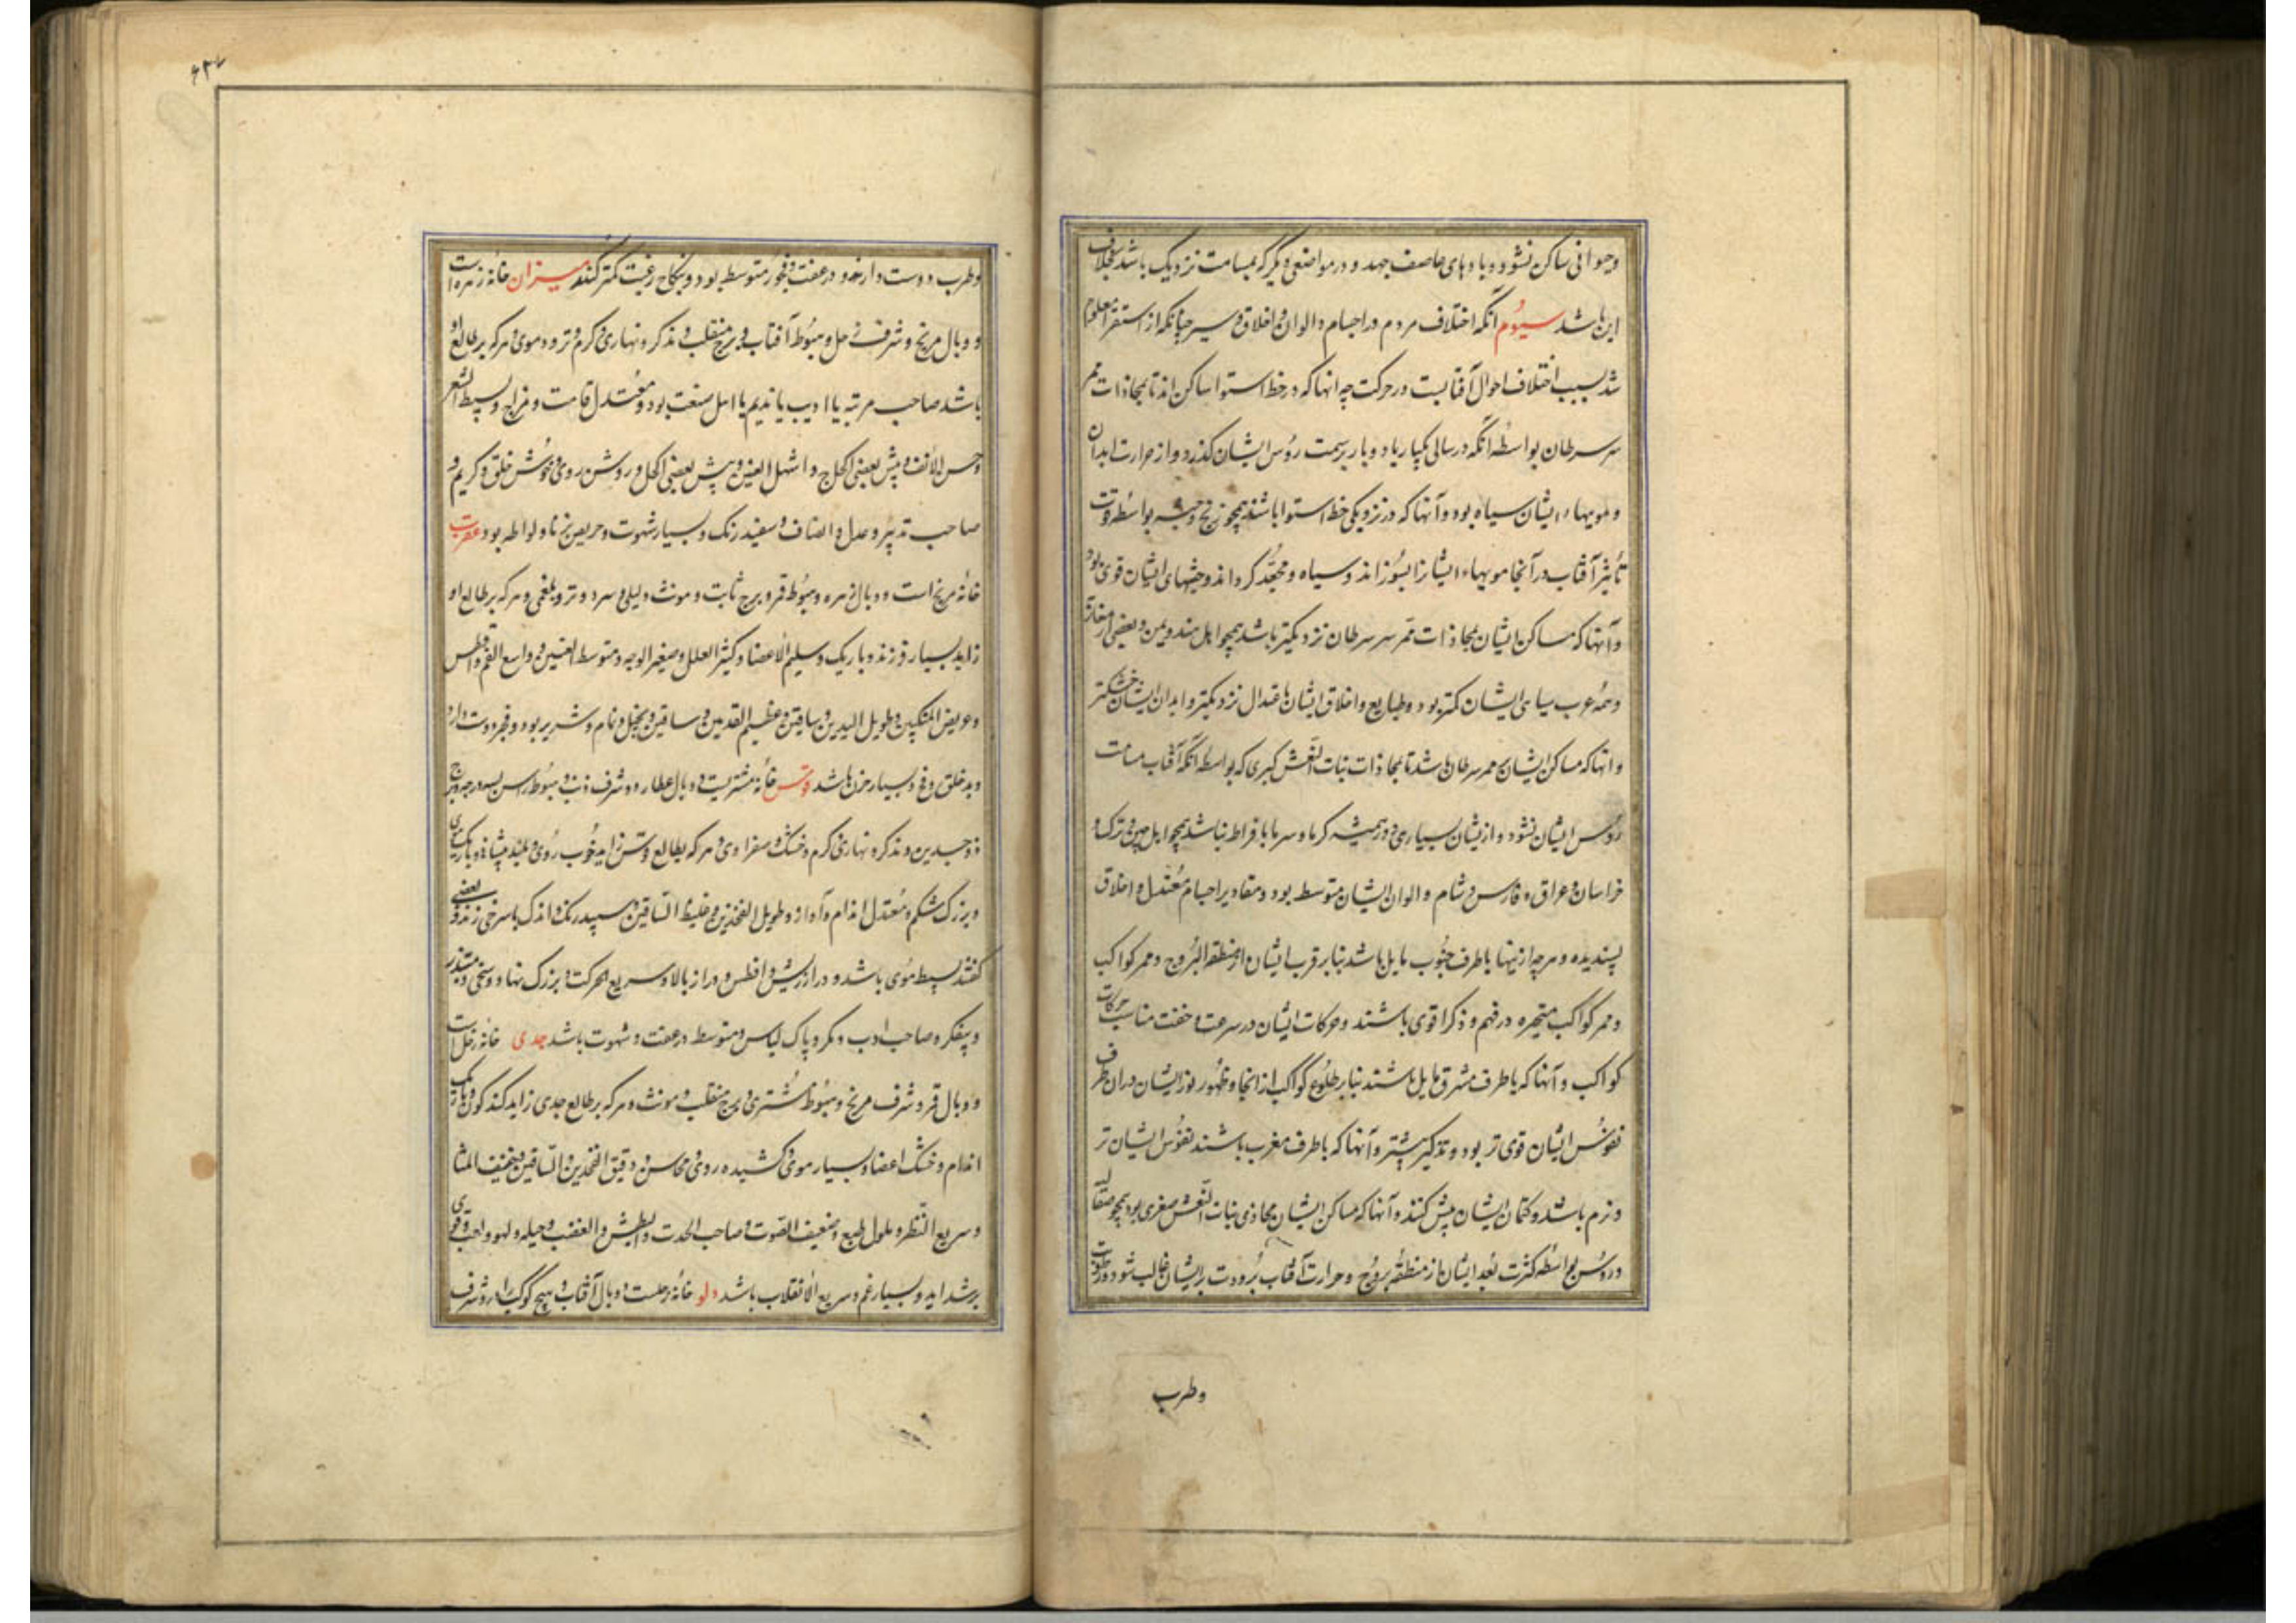 وحیوانی ساکن نشود و بادهای عاصف جهد و در مواضعی دیگر که بمسامت نزدیک باشد بخلاف
این باشد سیوم آنکه اختلاف مردم در اجسام و الوان و اخلاق و سیر چنانکه از استقرا معلوم
شد بسبب اختلاف احوال آفتابست در حرکت چه آنها که در خط استوا ساکن اند تا بمحاذات ممر
سر سرطان بواسطه آنکه در سالی یکبار یا دو بار بر سمت رؤس ایشان گذرد و از حرارت ابدان
و مویهاء ایشان سیاه بود و آنها که در نزدیکی خط استوا باشند همچو زنج و حبشه بواسطه قوت
تأثیر آفتاب در آنجا مویهاء ایشانرا بسوزاند و سیاه و مجعد گرداند و جثهای ایشان قوی بود
و آنها که مساکن ایشان بمحاذات ممر سر سرطان نزدیکتر باشد همچو اهل هند و یمن و بعضی از مغاربه
و همه عرب سیاهی ایشان کمتر بود و طبایع و اخلاق ایشان باعتدال نزدیکتر و ابدان ایشان خشکتر
و آنها که مساکن ایشان ممر سرطان باشد تا بمحاذات بنات النعش کبری که بواسطه آنکه آفتاب مسامت
رؤس ایشان نشود و از ایشان بسیاری دور همیشه گرما و سرما بافراط نباشد همچو اهل چین و ترک و
خراسان و عراق و فارس و شام و الوان ایشان متوسط بود و مقادیر اجسام معتدل و اخلاق
پسندیده و هر چه از اینها باطرف جنوب مایل باشد بنابر قرب ایشان از منطقة البروج و ممر کواکب
و ممر کواکب متحیره در فهم و ذکا قوی باشند و حرکات ایشان در سرعت و خفت مناسب حرکات
کواکب و آنها که باطرف مشرق مایل باشند بنابر طلوع کواکب از آنجا و ظهور نور ایشان در آن طرف
نفوس ایشان قوی تر بود و تذکیر بیشتر و آنها که باطرف مغرب باشند نفوس ایشان تر
و نرم باشد و کتمان ایشان بیش کنند و آنها که مساکن ایشان محاذی بنات النعش صغری بود همچو صقالبه
و روس بواسطه کثرت بعد ایشان از منطقه بروج و حرارت آفتاب برودت بر ایشان غالب شود و رطوبت
وطرب
وطرب دوست دارند و در عفت و فجور متوسط بود و بنکاح رغبت کمتر کنند میزان خانه زهره است
و وبال مریخ و شرف زحل و هبوط آفتاب و برج منقلب و مذکر و نهاری و گرم و تر و دموی و هر که بر طالع او
باشد صاحب مرتبه یا ادیب یا ندیم یا اهل صنعت بود و معتدل قامت و مزاج و بسیط الشعر
و حسن الانف و پیش بعضی الحلج و اشهل العین و پیش بعضی اکحل و روشن روی و خوش خلق و کریم و
صاحب تدبیر و عدل و انصاف و سفید رنگ و بسیار شهوت و حریص بزنا و لواطه بود عقرب
خانه مریخ است و وبال زهره و هبوط قمر و برج ثابت و مونث و لیلی و سرد و تر و بلغمی و هر که بر طالع او
زاید بسیار فرزند و باریک و سلیم الاعضا و کثیر العلل و صغیر الوجه و متوسط العینین و واسع الفم و افطس
و عریض المنکبین و طویل الیدین و ساقین و عظیم القدمین و ساقین و بخیل و نمام و شریر بود و فجور دوست دارد
و بدخلق و وقح و بسیار حزن باشد قوس خانه مشتریست و وبال عطارد و شرف ذنب و هبوط راس بسه درجه و برج
ذوجسدین و مذکر و نهاری و گرم و خشک و صفراوی و هر که بطالع قوس زاید خوب روی و بلند پیشانی و باریک بینی
و بزرگ شکم و معتدل اندام و آواز و طویل الفخذین و غلیظ الساقین و سپید رنگ و اندک با سرخی زند و بعضی
گفتند بسیط موی باشد و دراز ریش و افطس و دراز بالا و سریع الحرکت و بزرگ نهاد و سخی و متدبر
و بیفکر و صاحب ادب و مکر و پاک لباس و متوسط در عفت و شهوت باشد جدی خانه زحل است
و وبال قمر و شرف مریخ و هبوط مشتری و برج منقلب و مونث و هر که بر طالع جدی زاید گندم گون و باریک
اندام و خشک اعضا و بسیار موی و کشیده روی و محاسن و دقیق الفخذین و الساقین و خفیف المشا
و سریع النظر و ملول طبع و ضعیف الصوت و صاحب الحدت و البطش و الغضب و حیله و لهو و لعب و قوی
بر شداید و بسیار غم و سریع الانقلاب باشد دلو خانه زحلست و وبال آفتاب و هیچ کوکب را درو شرف